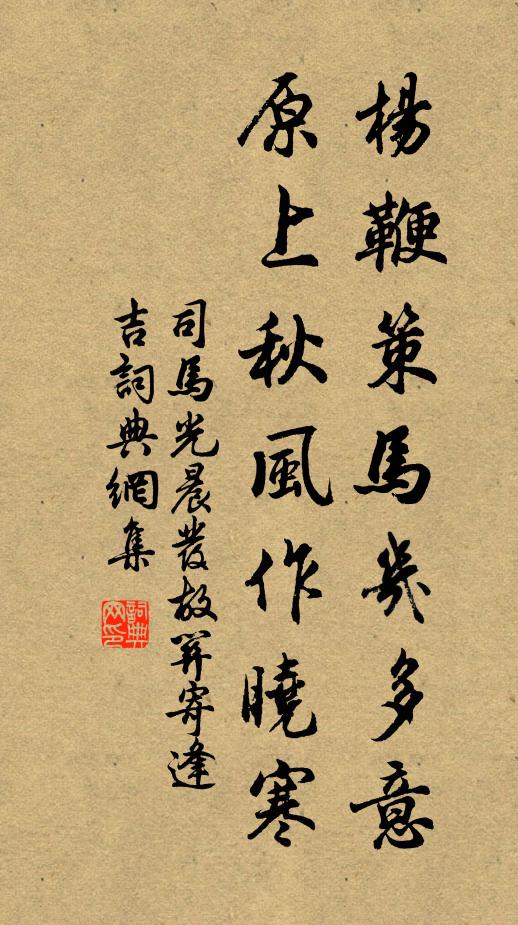 楊鞭策馬幾多意
原上秋風作曉寒
司馬光晨發故關寄逢
吉詞典網集
詞典
网印